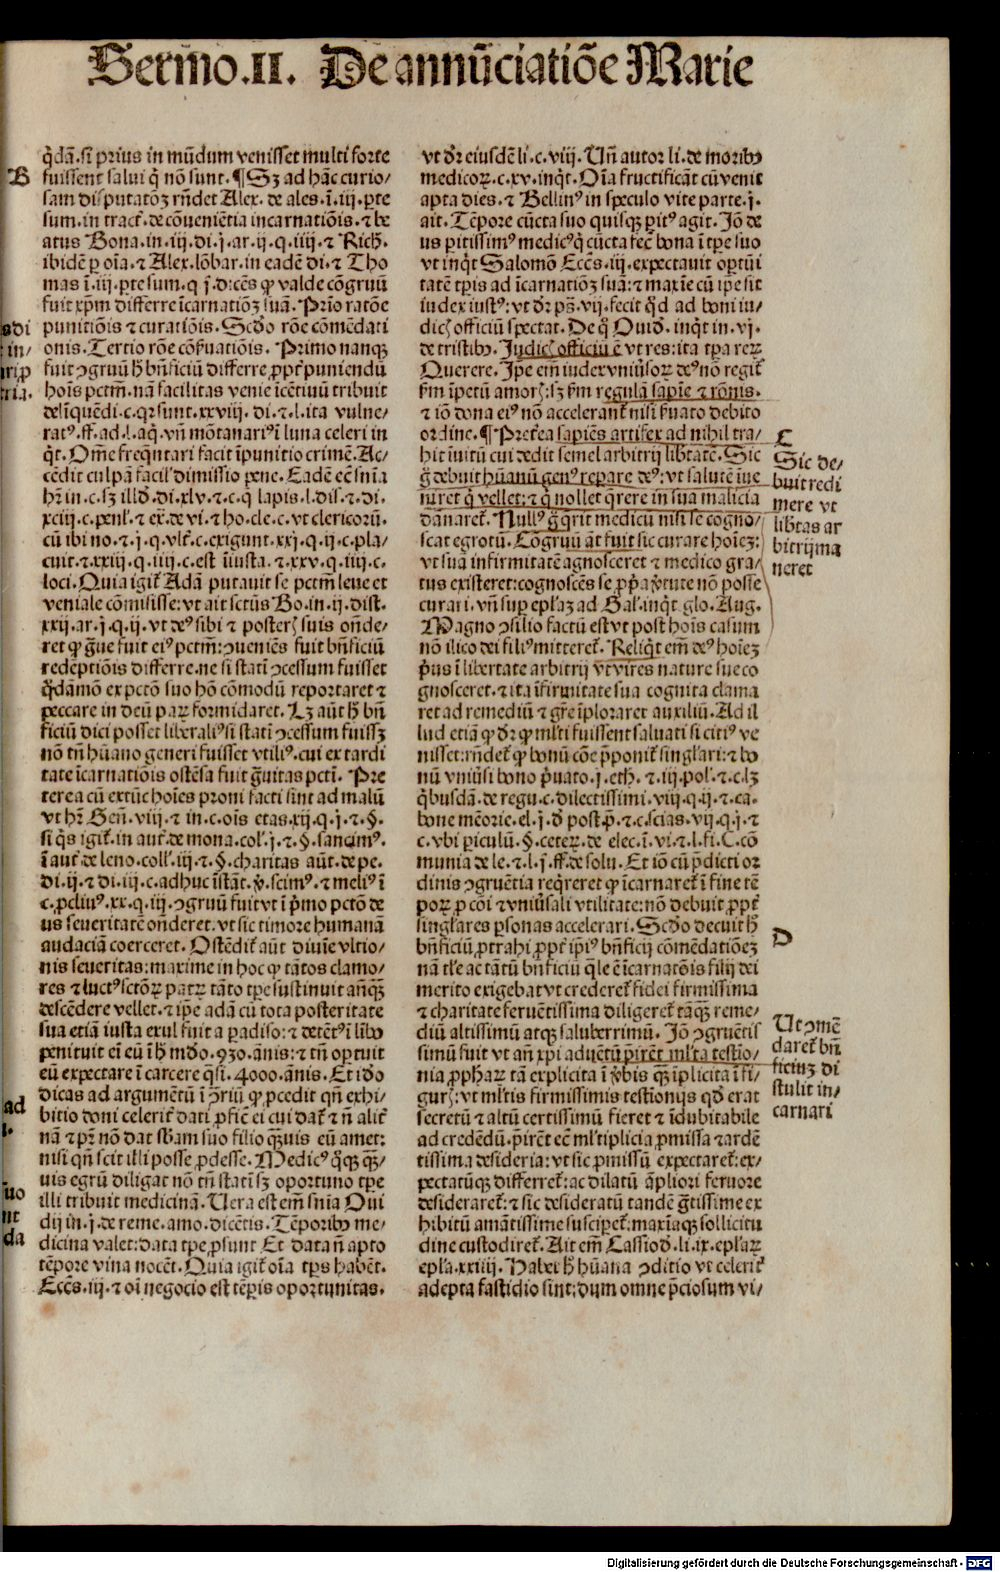 Sermo.II. De annūciatiōe Marie
q̄dā. si prius in mūdum venisset multi forte
fuissent salui q̄ nō sunt. ¶ Sꝫ ad hāc curio/
sam disputatōꝫ rn̄det Alex. de ales. ī. iii. ꝑte
sum. in tract̄. de cōueniētia incarnatiōis. ⁊ be
atus Bona. in. iij. di. j. ar. ij. q. iiij. ⁊ Rich̄.
ibidē ꝑ oīa. ⁊ Alex. lōbar. in eadē di. ⁊ Tho
mas ī. iij. ꝑte sum. q j. d: cēs ꝙ valde cōgruū
fuit xp̄m differre īcarnatiōꝫ suā. Prīo ratōe
punitiōis ⁊ curatiōis. Scd̄o rōe cōmēdati
onis. Tertio rōe cōẜuatiōis. Primo nanqꝫ
fuit ꝯgruū h̄ bn̄ficiū differre ꝓpt̄ puniendū
hoīs pctm̄. nā facilitas venie īcētiuū tribuit
delīquēdi. c. qr̄ sunt. xxviij. di. ⁊. l. ita vulne/
ratꝰ. ff. ad. l. aq̄. vn̄ mōtanariꝰ ī luna celeri in
q̄t. Om̄e freq̄ntari facit īpunitio crimē. Ac/
cedit culpā facil̓ dimissio pene. Eadē eē sn̄ia
hr̄ in. c. sꝫ illd̄. di. xlv. ⁊. c. q lapis. l. dis̄. ⁊. di.
xciij. c. penl̓. ⁊ ex̄. de vi. ⁊ ho. cle. c. vt clericorū.
cū ibi no. ⁊. j. q. vlt̄. c. exigunt. xxj. q. ij. c. pla/
cuit. ⁊. xxiij. q. iiij. c. est īiusta. ⁊. xxv. q. iiij. c.
loci. Quia igit̄ Adā putauit se pctm̄ leue et
veniale cōmisisse: vt ait sctūs Bo. in. ij. dist.
xxij. ar. j. q. ij. vt deꝰ sibi ⁊ posteris suis on̄de/
ret ꝙ ḡue fuit eiꝰ pctm̄: ꝯueniēs fuit bn̄ficiū
redēptiōis differre. ne si stati ꝯcessum fuisset
q̄dāmō ex pctō suo hō cōmodū reportaret ⁊
peccare in deū paꝝ formidaret. Lꝫ aūt h̄ bn̄
ficiū dici posset liberaliꝰ si stati ꝯcessum fuissꝫ
nō tn̄ hūano generi fuisset vtiliꝰ. cui ex tardi
tate īcarnatiōis ostēsa fuit ḡuitas pcti. Pre
terea cū extūc hoīes proni facti sint ad malū
vt hr̄ Gen̄. viij. ⁊ in. c. oīs etas. xij. q. j. ⁊. §.
si q̄s igit̄. in aut̄. de mona. col̓. j. ⁊. §. sancimꝰ.
ī aut̄. de leno. coll̓. iij. ⁊. §. charitas aūt. de pe.
di. ij. ⁊ di. iij. c. adhuc īstāt. ꝟ. scimꝰ. ⁊ meliꝰ ī
c. ꝓcliuꝰ. xx. q. iij. ꝯgruū fuit vt ī p̄mo pctō de
us seueritatē on̄deret. vt sic timore humanā
audaciā coerceret. Ostēdit̄ aūt diuīe vltio/
nis seueritas: maxime in hoc ꝙ tātos clamo/
res ⁊ luctꝰ sctōꝝ patꝝ tāto tp̄e sustinuit anq̄ꝫ
descēdere vellet. ⁊ ip̄e adā cū tota posteritate
sua etiā iusta exul fuit a ꝑadiso: ⁊ detētꝰ ī lībo
penituit eī eū ī h̄ mūdo. 930. ānis: ⁊ tn̄ oꝑtuit
eū expectare ī carcere q̄si. 4000. ānis. Et idō
dicas ad argumētū ī ꝯr̄iū ꝙ ꝓcedit qn̄ exhi/
bitio doni celerit̄ dati ꝓficē ei cui dat̄ ⁊ n̄ alit̄
nā ⁊ pr̄ nō dat stati suo filio q̄ꝫuis eū amet:
nisi qn̄ scit illi posse ꝓdesse. Medicꝰ q̄qꝫ q̄ꝫ/
uis egrū diligat nō tn̄ stati sꝫ oportuno tp̄e
illi tribuit medicinā. Uera est em̄ sn̄ia Oui
dij in. j. de reme. amo. dicētis. Tēporibꝰ me/
dicina valet: data tp̄e ꝓsunt Et data n̄ apto
tēpore vina nocēt. Quia igit̄ oīa tp̄s habēt.
Ecc̄s. iij. ⁊ oī negocio est tēpis oportunitas.
vt dr̄ eiusdē li. c. viij. Un̄ autor li. de moribꝰ
medicoꝝ. c. xv. inq̄t. Oīa fructificāt cū venit
apta dies. ⁊ Bellinꝰ in speculo vite parte. j.
ait. Tēpore cūcta suo quisqꝫ ꝑitꝰ agit. Iō de
us ꝑitissimꝰ medicꝰ q̄ cūcta fec̄ bona ī tp̄e suo
vt inq̄t Salomō Ecc̄s. iij. expectauit oꝑtūi
tatē tp̄is ad īcarnatiōꝫ suā: ⁊ maxīe cū ip̄e sit
iudex iustꝰ: vt dr̄ ps̄. vij. fecit q̄d ad boni iu/
dicis officiū spectat. De q̄ Ouid̄. inq̄t in. vj.
de tristibꝰ. Iudicis officiū ē vt res: ita tp̄a reꝝ
Querere. Ip̄e em̄ iudex vniūsoꝝ deꝰ nō regit̄
ẜm īpetū amoris: sꝫ ẜm regulā sapiē ⁊ rōnis.
⁊ iō dona eiꝰ nō accelerant̄ nisi ẜuato debito
ordine. ¶ Pret̄ea sapiēs artifex ad nihil tra/
hit īuitū cui dedit semel arbitrij libtatē. Sic
g̊ debuit hūanū genꝰ reꝑare deꝰ: vt salutē īue
niret q̄ vellet: ⁊ q̄ nollet q̄rere in sua malicia
dānaret̄. Nullꝰ g̊ q̄rit medicū nisi se cogno/
scat egrotū. Cōgruū āt fuit sic curare hoīeꝫ:
vt sua infirmitatē agnosceret ⁊ medico gra/
tus existeret: cognoscēs se ꝓp̄a ꝟtute nō posse
curari. vn̄ suꝑ ep̄laꝫ ad Gal̓. inq̄t glo. Aug.
Magno ꝯsilio factū est vt post hoīs casum
nō ilico dei filiꝰ mitteret̄. Reliq̄t em̄ deꝰ hoīeꝫ
p̄us ī libertate arbitrij vt vires nature sue co
gnosceret. ⁊ ita īfirmitate sua cognita clama
ret ad remediū ⁊ gr̄e īploraret auxiliū. Ad il
lud etiā ꝙ dr̄ ꝙ ml̓ti fuissent saluati si citiꝰ ve
nisset: rn̄det̄ ꝙ bonū cōe p̄ponit̄ singl̓ari: ⁊ bo
nū vniūsi bono p̄uato. j. eth̄. ⁊. iij. pol̓. ⁊. c. lꝫ
q̄busdā. de regu. c. dilectissimi. viij. q. ij. ⁊ ca.
bone memorie. el. j. ⁊ post p̄. ⁊. c. scias. vij. q. j. ⁊
c. vbi periculū. §. ceteꝝ. de elec. ī. vi. ⁊. l. fi. C. cō
munia de le. ⁊. l. j. ff. de solu. Et iō cū p̄dicti or
dinis ꝯgruētia req̄reret ꝙ īcarnaret̄ ī fine tē
poꝝ ꝑ cōi ⁊ vniūsali vtilitate: nō debuit ꝓpt̄
singl̓ares ꝑsonas accelerari. Scd̄o decuit h̄
bn̄ficiū ꝓtrahi ꝓpt̄ ip̄iꝰ bn̄ficij cōmēdatiōeꝫ
nā tl̓e ac tātū bn̄ficiū q̄le ē īcarnatōis filij dei
merito exigebat vt crederet̄ fidei firmissima
⁊ charitate feruētissima diligeret̄ tāq̄ꝫ reme/
diū altissimū atqꝫ saluberrimū. Iō ꝯgruētis
simū fuit vt an̄ xp̄i aduētū p̄irēt ml̓ta testio/
nia ꝓphaꝝ tā explicita ī ꝟbis q̄ꝫ īplicita ī fi/
guris: vt ml̓tis firmissimis testionijs qd̄ erat
secretū ⁊ altū certissimū fieret ⁊ īdubitabile
ad credēdū. p̄irēt eē ml̓tiplicia ꝓmissa ⁊ ardē
tissima desideria: vt sic ꝓmissū expectaret̄: ex/
pectatūqꝫ differret̄: ac dilatū āpliori feruore
desideraret̄: ⁊ sic desideratū tandē g̊tissime ex
hibitū amātissime susciꝑet̄: maxīaqꝫ sollicitu
dine custodiret̄. Ait em̄ Cassiod̄. li. ix. ep̄laꝝ
ep̄la. xxiiij. Habet h̄ hūana ꝯditio vt celerit̄
adepta fastidio sint: dum omne p̄ciosum vi/
B
C
Sic de/
buit redi
mere vt
libtas ar
bitrij ma
neret
D
Ut ꝯmē
daret̄ bn̄
ficiuꝫ di
stulit in/
carnari
sdi
in/
ria.
ad
uo
nt
da
Digitalisierung gefördert durch die Deutsche Forschungsgemeinschaft - DFG